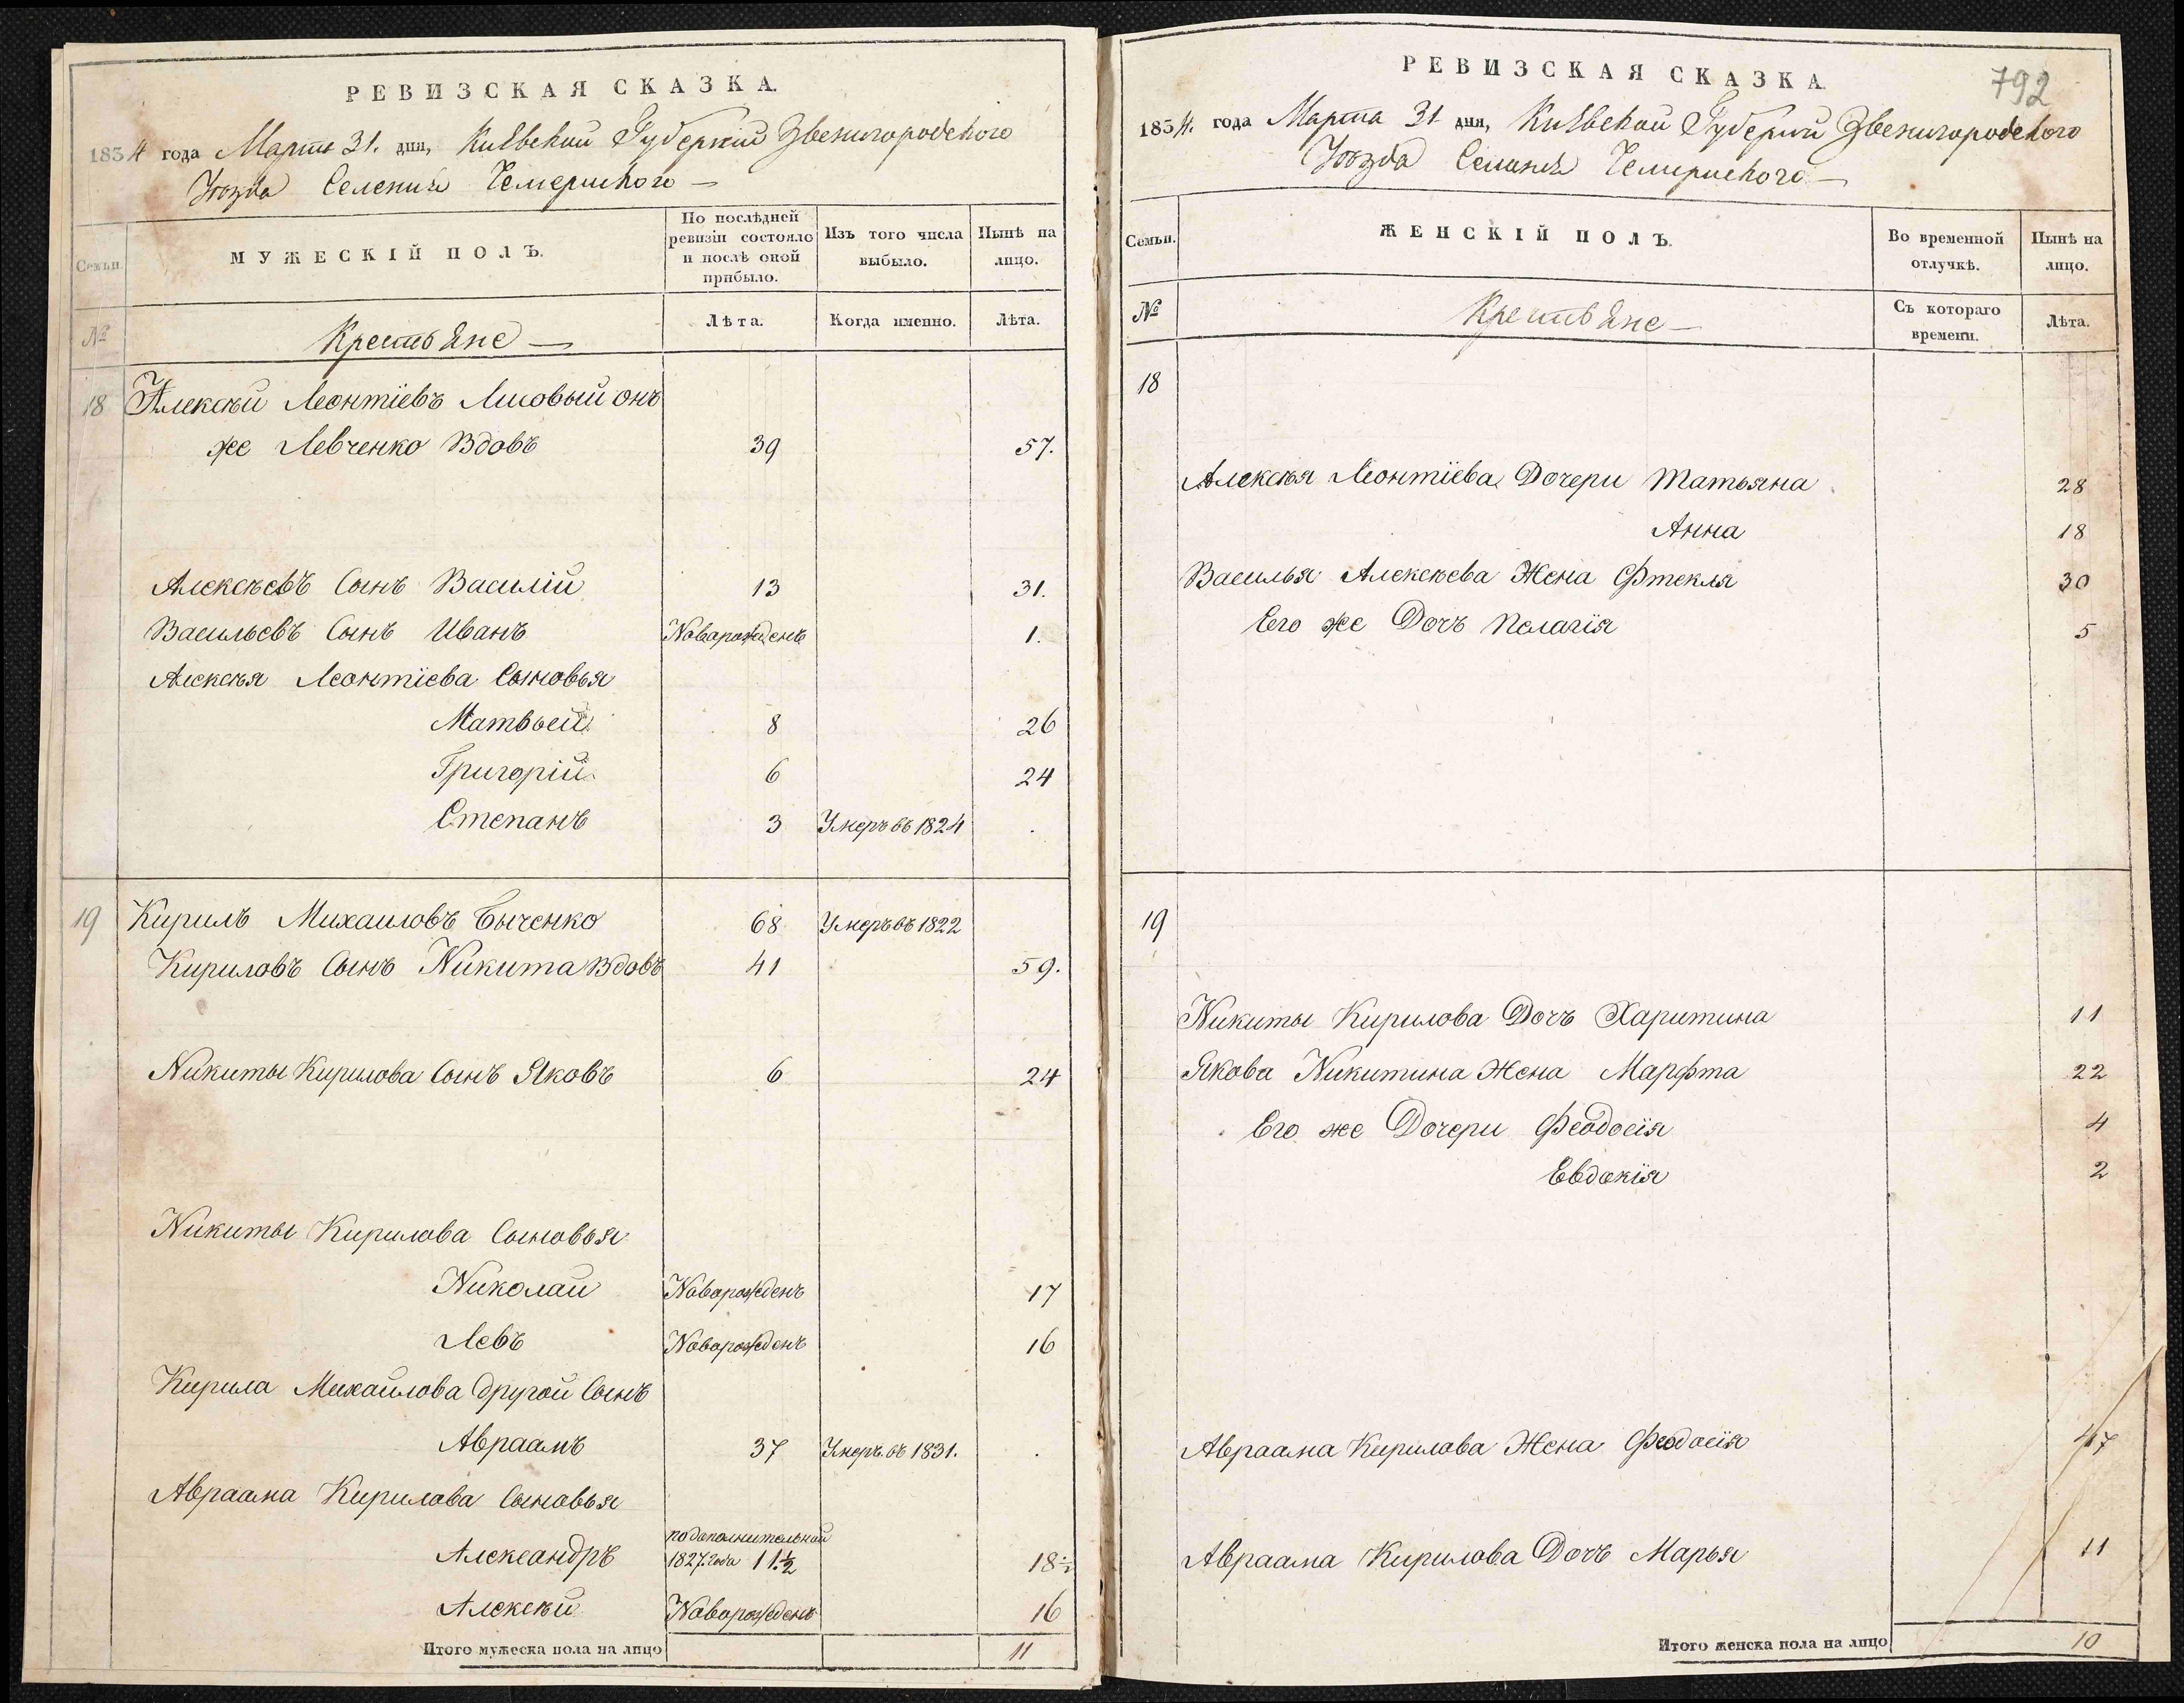 РЕВИЗСКАЯ СКАЗКА.
1834 года Марта 31. дня, Кіевской Губерніи Звенигородского
Уѣзда Селенія Чемериского —
Семьи.
МУЖЕСКІЙ ПОЛЪ.
По послѣдней ревизіи состояло и послѣ оной прибыло.
Изъ того числа выбыло.
Нынѣ на лицо.
№
Крестьяне —
Лѣта.
Когда именно.
Лѣта.
18 Алексѣй Леонтіевъ Лисовый онъ
же Левченко Вдовъ 39 57.
Алексѣевъ Сынъ Василій 13 31.
Васильевъ Сынъ Иванъ Наворожденъ 1.
Алексѣя Леонтіева Сыновья
Матвьей 8 26
Григорій 6 24
Степанъ 3 Умеръ въ 1824 .
19 Кирилъ Михаиловъ Быченко 68 Умеръ въ 1822
Кириловъ Сынъ Никита Вдовъ 41 59.
Никиты Кирилова Сынъ Яковъ 6 24
Никиты Кирилова Сыновья
Николай Наворожденъ 17
Левъ Наворожденъ 16
Кирила Михаилова другой Сынъ
Авраамъ 37 Умеръ въ 1831. .
Авраама Кирилова Сыновья
Александръ по дополнительной 1827. года 11.½ 18½
Алексѣй Наворожденъ 16
Итого мужеска пола на лицо 11
792
РЕВИЗСКАЯ СКАЗКА.
1834. года Марта 31 дня, Кіевской Губерніи Звенигородского
Уѣзда Селенія Чемериского —
Семьи.
ЖЕНСКІЙ ПОЛЪ.
Во временной отлучкѣ.
Нынѣ на лицо.
№
Крестьяне —
Съ котораго времени.
Лѣта.
18
Алексѣя Леонтіева Дочери Татьяна 28
Анна 18
Василья Алексѣева Жена Фтекля 30
Его же Дочъ Пелагія 5
19
Никиты Кирилова Дочъ Харитина 11
Якова Никитина Жена Марфта 22
Его же Дочери Феодосія 4
Евдокія 2
Авраама Кирилова Жена Феодосія 47
Авраама Кирилова Дочъ Марья 11
Итого женска пола на лицо 10